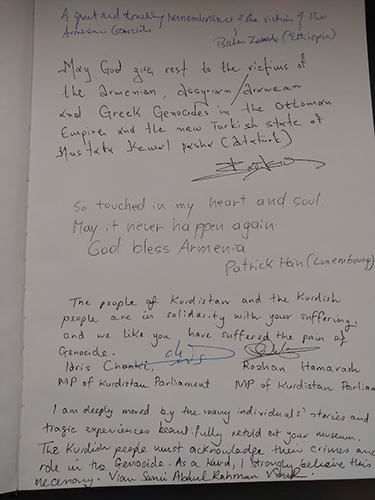 A great and touching remembrance of the victims of the
Armenian Genocide
(Ethiopia)
May God give rest to the victims of
the Armenian, Assyrian/Aramean
and Greek Genocides in the Ottoman
Empire and the new Turkish state of
Mustafa Kemal pasha (Atatürk)
So touched in my heart and soul.
May it never happen again.
God bless Armenia
Patrick Hein (Luxembourg)
The people of Kurdistan and the Kurdish
people are in solidarity with your suffering.
and we like you have suffered the pain of
Genocide.
Idris Rozhan Hamarash
MP of Kurdistan Parliament MP of Kurdistan Parliam
I am deeply moved by the many individuals' stories and
tragic experiences beautifully retold at your museum.
The Kurdish people must acknowledge their crimes and
role in the Genocide. As a Kurd, I strongly believe this is
necessary. Vian Sami Abdul Rahman